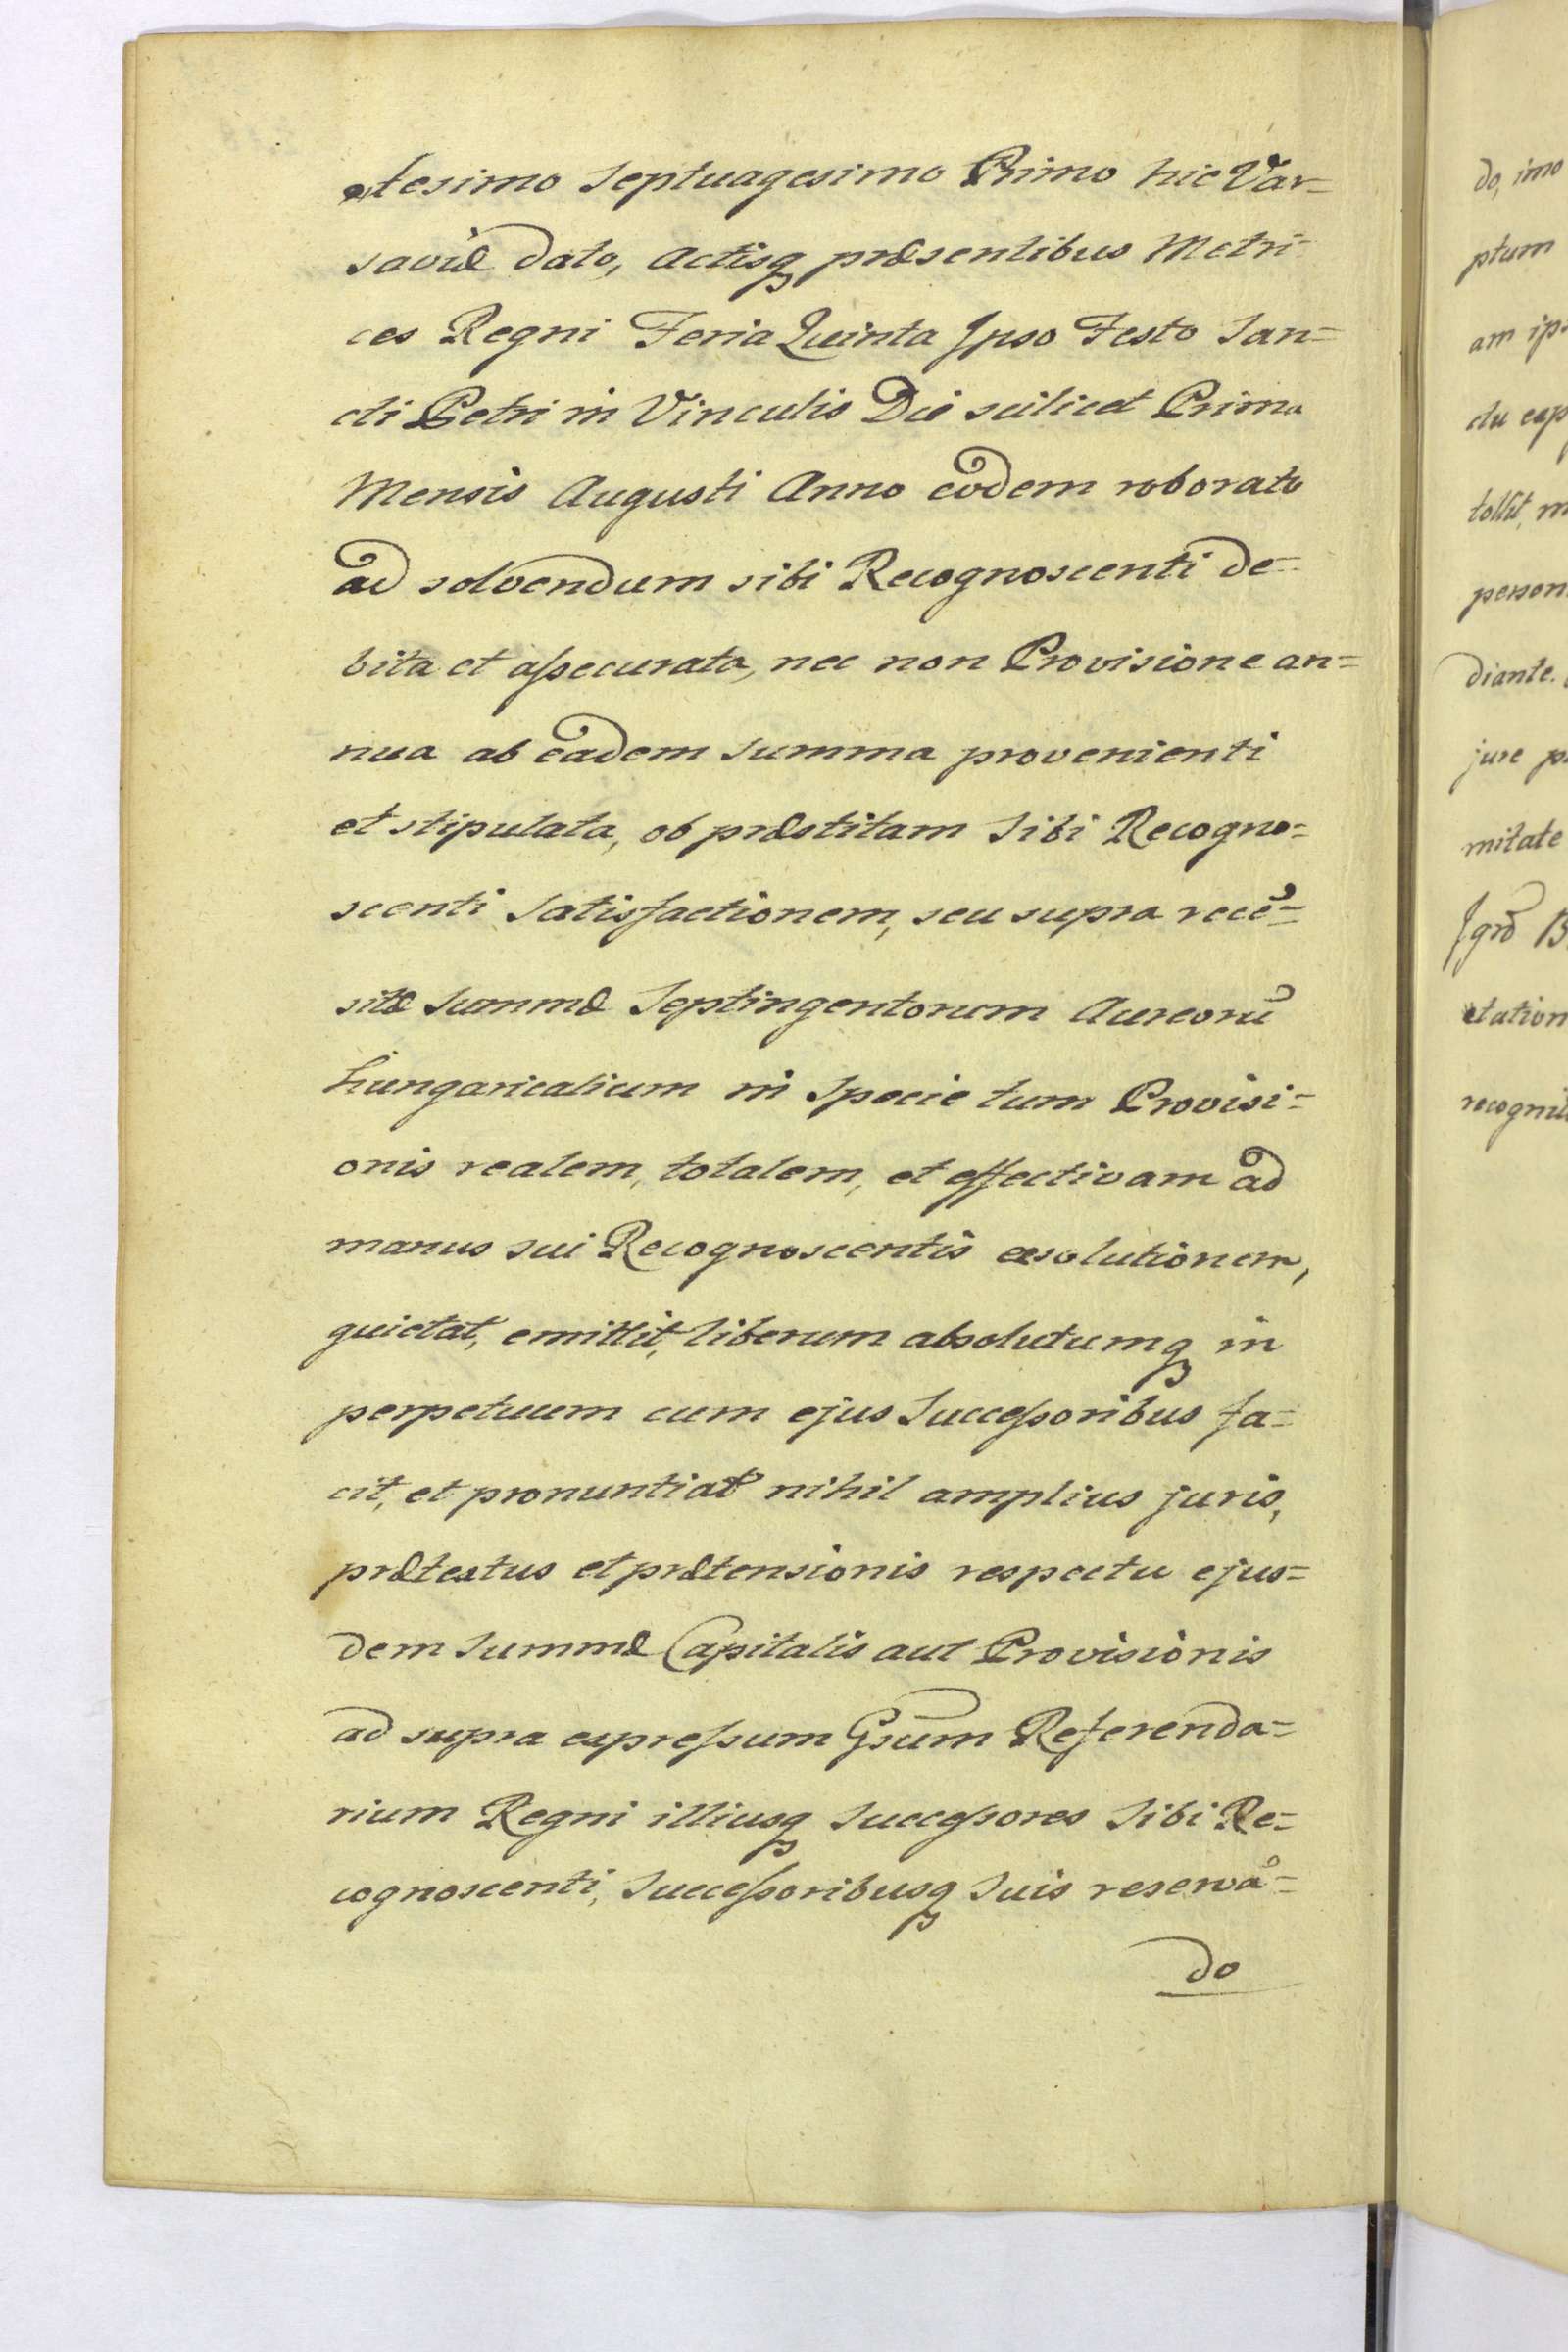 ntesimo Septuagesimo Primo hic Var=
saviæ dato, Actisq præsentibus Metri=
ces Regni Feria Quinta Ipso Festo San=
cti Petri in Vinculis Die scilicet Prima
Mensis Augusti Anno eodem roborato
ad solvendum sibi Recognoscenti de=
bita et assecurata, nec non Provisione an=
nua ab eadem Summa provenienti
et stipulata, ob præstitam Sibi Recogno=
scenti Satisfactionem, seu supra recē=
sitæ Summæ Septingentorum Aureorū
hungaricalium in Specie tum Provisi=
onis realem, totalem, et effectivam ad
manus sui Recognoscentis exsolutionem,
quietat, emittit, liberum absolutumq in
perpetuum cum ejus Successoribus fa=
cit, et pronuntiat nihil amplius juris,
prætextus et prætensionis respectu ejus=
dem Summæ Capitalis aut Provisionis
ad supra expressum Gsum Referenda=
rium Regni illiusq Successores Sibi Re=
cognoscenti, Successoribusq Suis reservā=
do
do, imo
ptum
am ips
ctu exp
tollit, m
person
diante.
jure p
mitate
Jgrd B
ctation
recognit